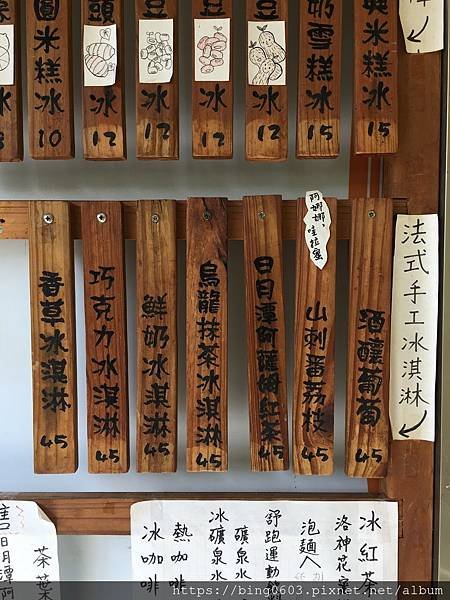 圓米糕冰
10
頭
冰
12
冰
12
豆
冰
12
豆
冰
12
奶雪糕冰
15
米糕冰
15
香草冰淇淋
45
巧克力冰淇淋
45
鮮奶冰淇淋
45
烏龍抹茶冰淇淋
45
日月潭阿薩姆紅茶
45
阿娜娜,
哇拉蜜
山刺番荔枝
45
酒釀葡萄
45
法式手工冰淇淋
售日月潭
茶葉
冰紅茶
洛神花
泡麵
舒跑運動
礦泉水
冰礦泉水
熱咖啡
冰咖啡
https://bing0603.pixnet.net/album